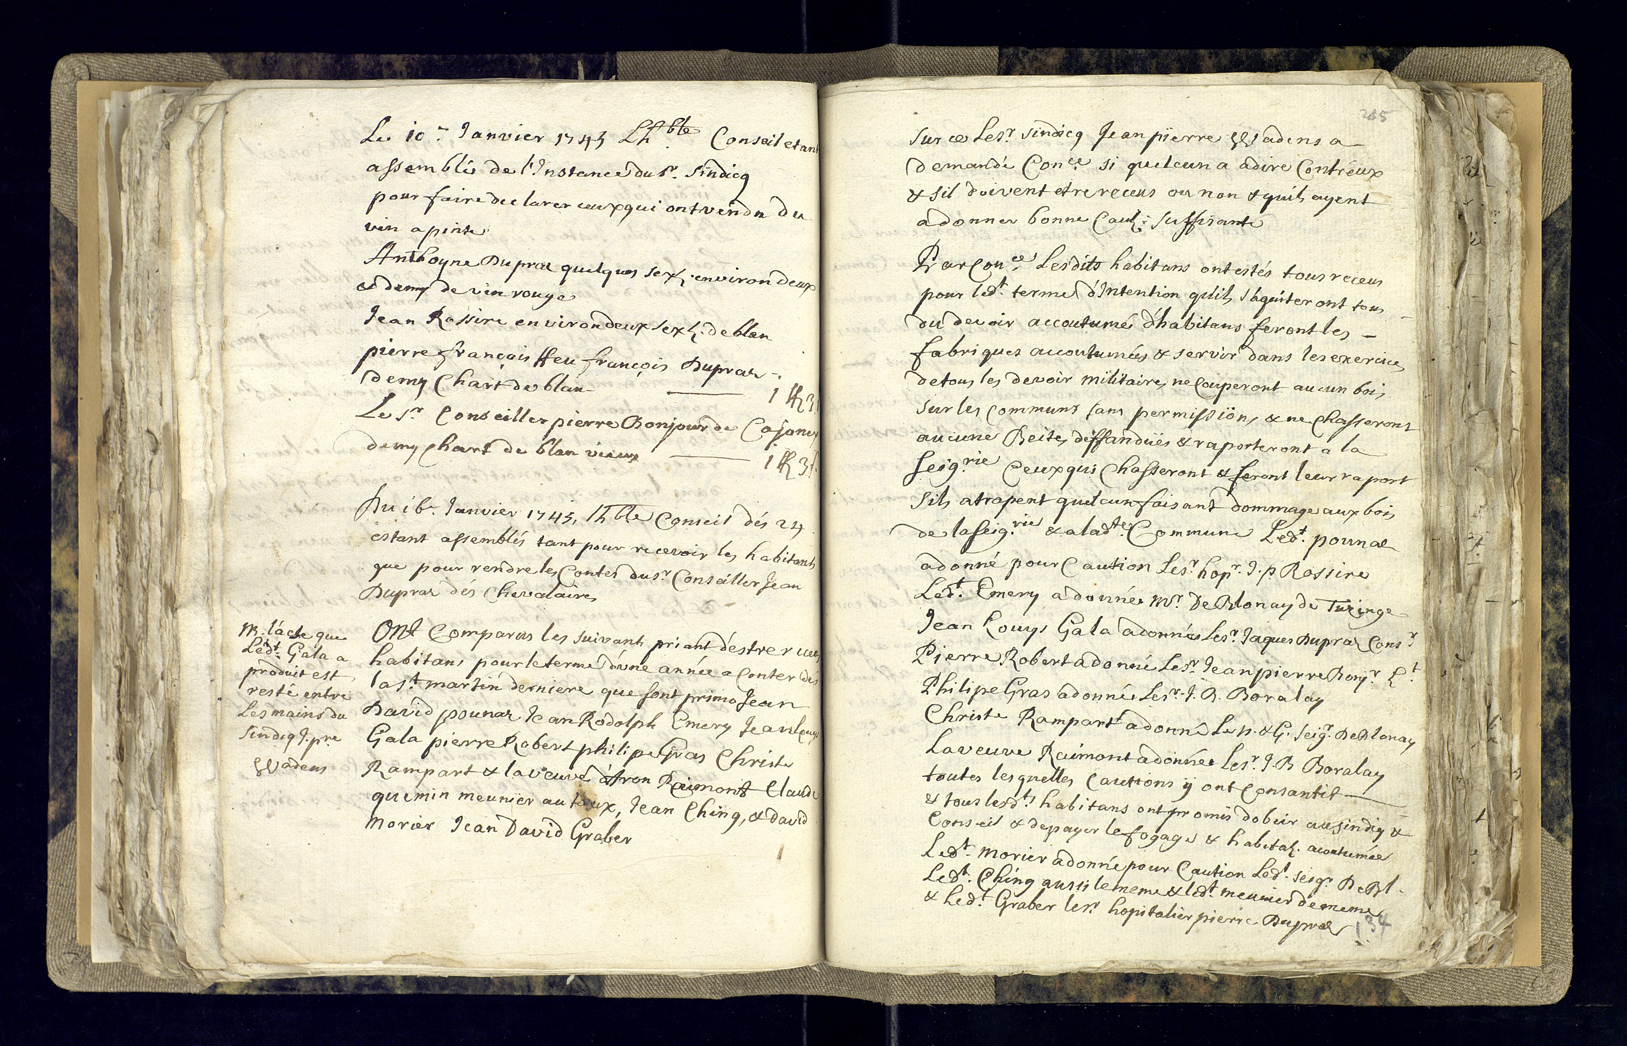 Le 10.e Janvier 1745 Lh.ble Conseil etant
assemblés de l'Instance du Sr. Sindicq
pour faire declarer ceux qui ont vendu du
vin a pinte
Anthoyne Dupraz quelques sex. environ deux
& demy de vin rouge
Jean Rossire environ deux sex. de blan
pierre françois ffeu françois Dupraz
demy Chart de blan 1
Le Sr. Conseiller pierre Bonjour de Cojonex
demy chart de blan vieux 1
Du Janvier 1745, lh.ble Conseil dés 24
estant assemblés tant pour recevoir les habitants
que pour rendre les Contes du Sr. Conseiller Jean
Dupraz dés Chevalaires
Ont Comparus les suivant priant déstre receus
habitans pour le terme d'une année a Conter dés
la St. martin derniere que sont primo Jean
David pounaz Jean Rodolph Emery Jean louys
Gala pierre Robert philipe Gras Christe
Rampart & la veuve d'Aron Reimont Claude
quemin meunier au taux, Jean Ching, & david
morier Jean David Graber
l'acte que
Ledt. Gala a
produit est
resté entre
Les mains du
Sindiq J: pre
Wadens
285
sur ce Le Sr. sindicq Jean pierre Wadens a
demandé Con.ce si quelcun a a dire Contr'eux
& s'il doivent etre receus ou non & quils ayent
a donner bonne Caut: suffisante
Par Con.ce Lesdits habitans ont estés tous receus
pour ledt. terme d'Intention quils s'aquiteront tous
du devoir accoutumé d'habitans feront les
fabriques accoutumées & servir dans les exercice
de tous les devoir militaire, ne Couperont aucun bois
sur les Communs sans permission, & ne Chasseront
aucune Beites deffanduës & raporteront a la
seig.rie Ceux qui Chasseront & feront leur raport
Sils atrapent quelcun faisant dommage aux bois
de la seig.rie & a lad.te Commune Ledt. pounaz
a donné pour Caution Le Sr. hop.r J: p Rossire
Ledt. Emery a donnés Mr. De Blonay de Turinge
Jean Louys Gala a donnés Le Sr. Jaques Dupraz Cons.r
Pierre Robert a donné Le Sr. Jean pierre Bonj.r
Philipe Gras a donnés Le Sr. J. B. Boralay
Christe Rampart a donné Le N. & G. Seig.r De Blonay
La veuve Raimont a donnés Le Sr. J. B Boralay
toutes lesquelles Cautions y ont Consantit
& tous lesdts habitans ont promis d'obeir au sindiq &
Conseil & de payer le fogage & habitaz. acoutumée
Ledt. morier a donné pour Caution Ledt. seigr De Bl.
Ledt. Ching aussi le meme & ledt meunier de meme
& Ledt. Graber le Sr. hopitalier pierre Dupraz
134